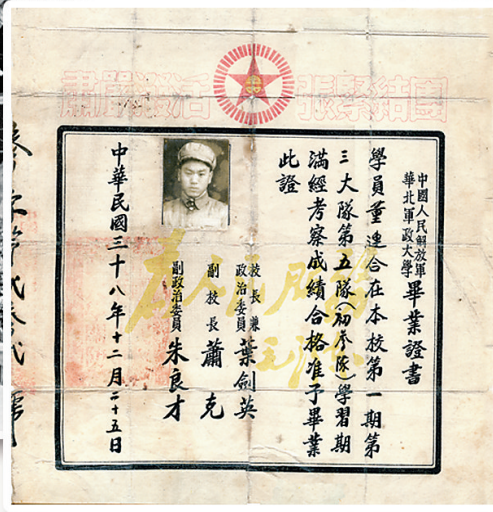 團結緊張
活潑嚴肅
中國人民解放軍
華北軍政大學
畢業證書
學員董連合在本校第一期第
三大隊第五隊(初參隊)學習期
滿經考察成績合格准予畢業
此證
校長兼
政治委員 葉劍英
副校長 蕭克
副政治委員 朱良才
中華民國三十八年十二月二十五日
為人民服務